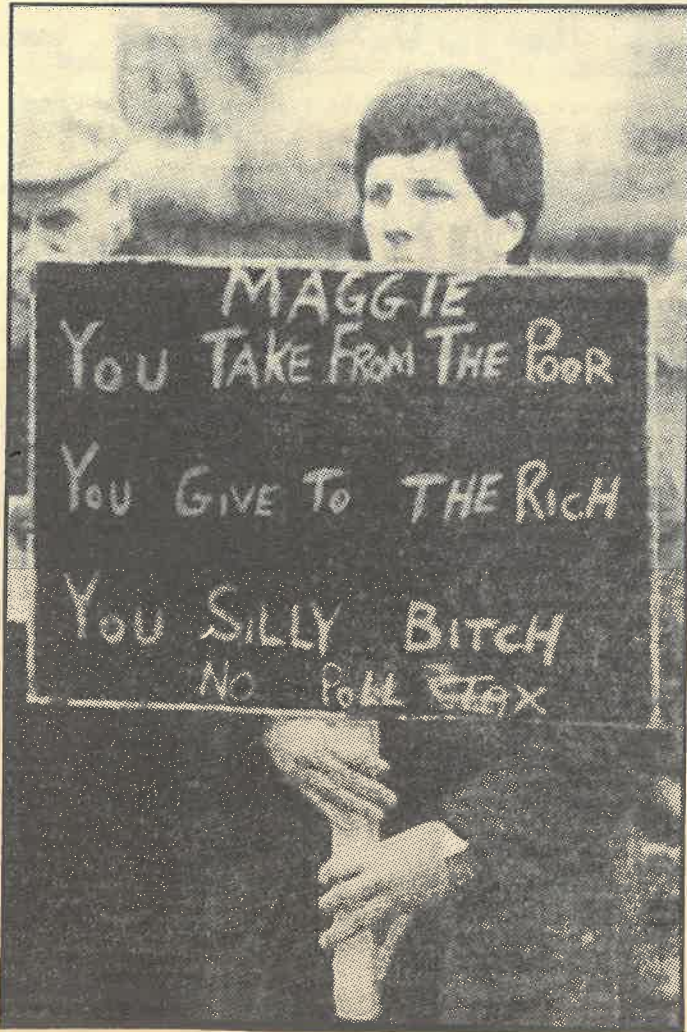 MAGGIE
YOU TAKE FROM THE POOR
YOU GIVE TO THE RICH
YOU SILLY BITCH
NO POLL TAX